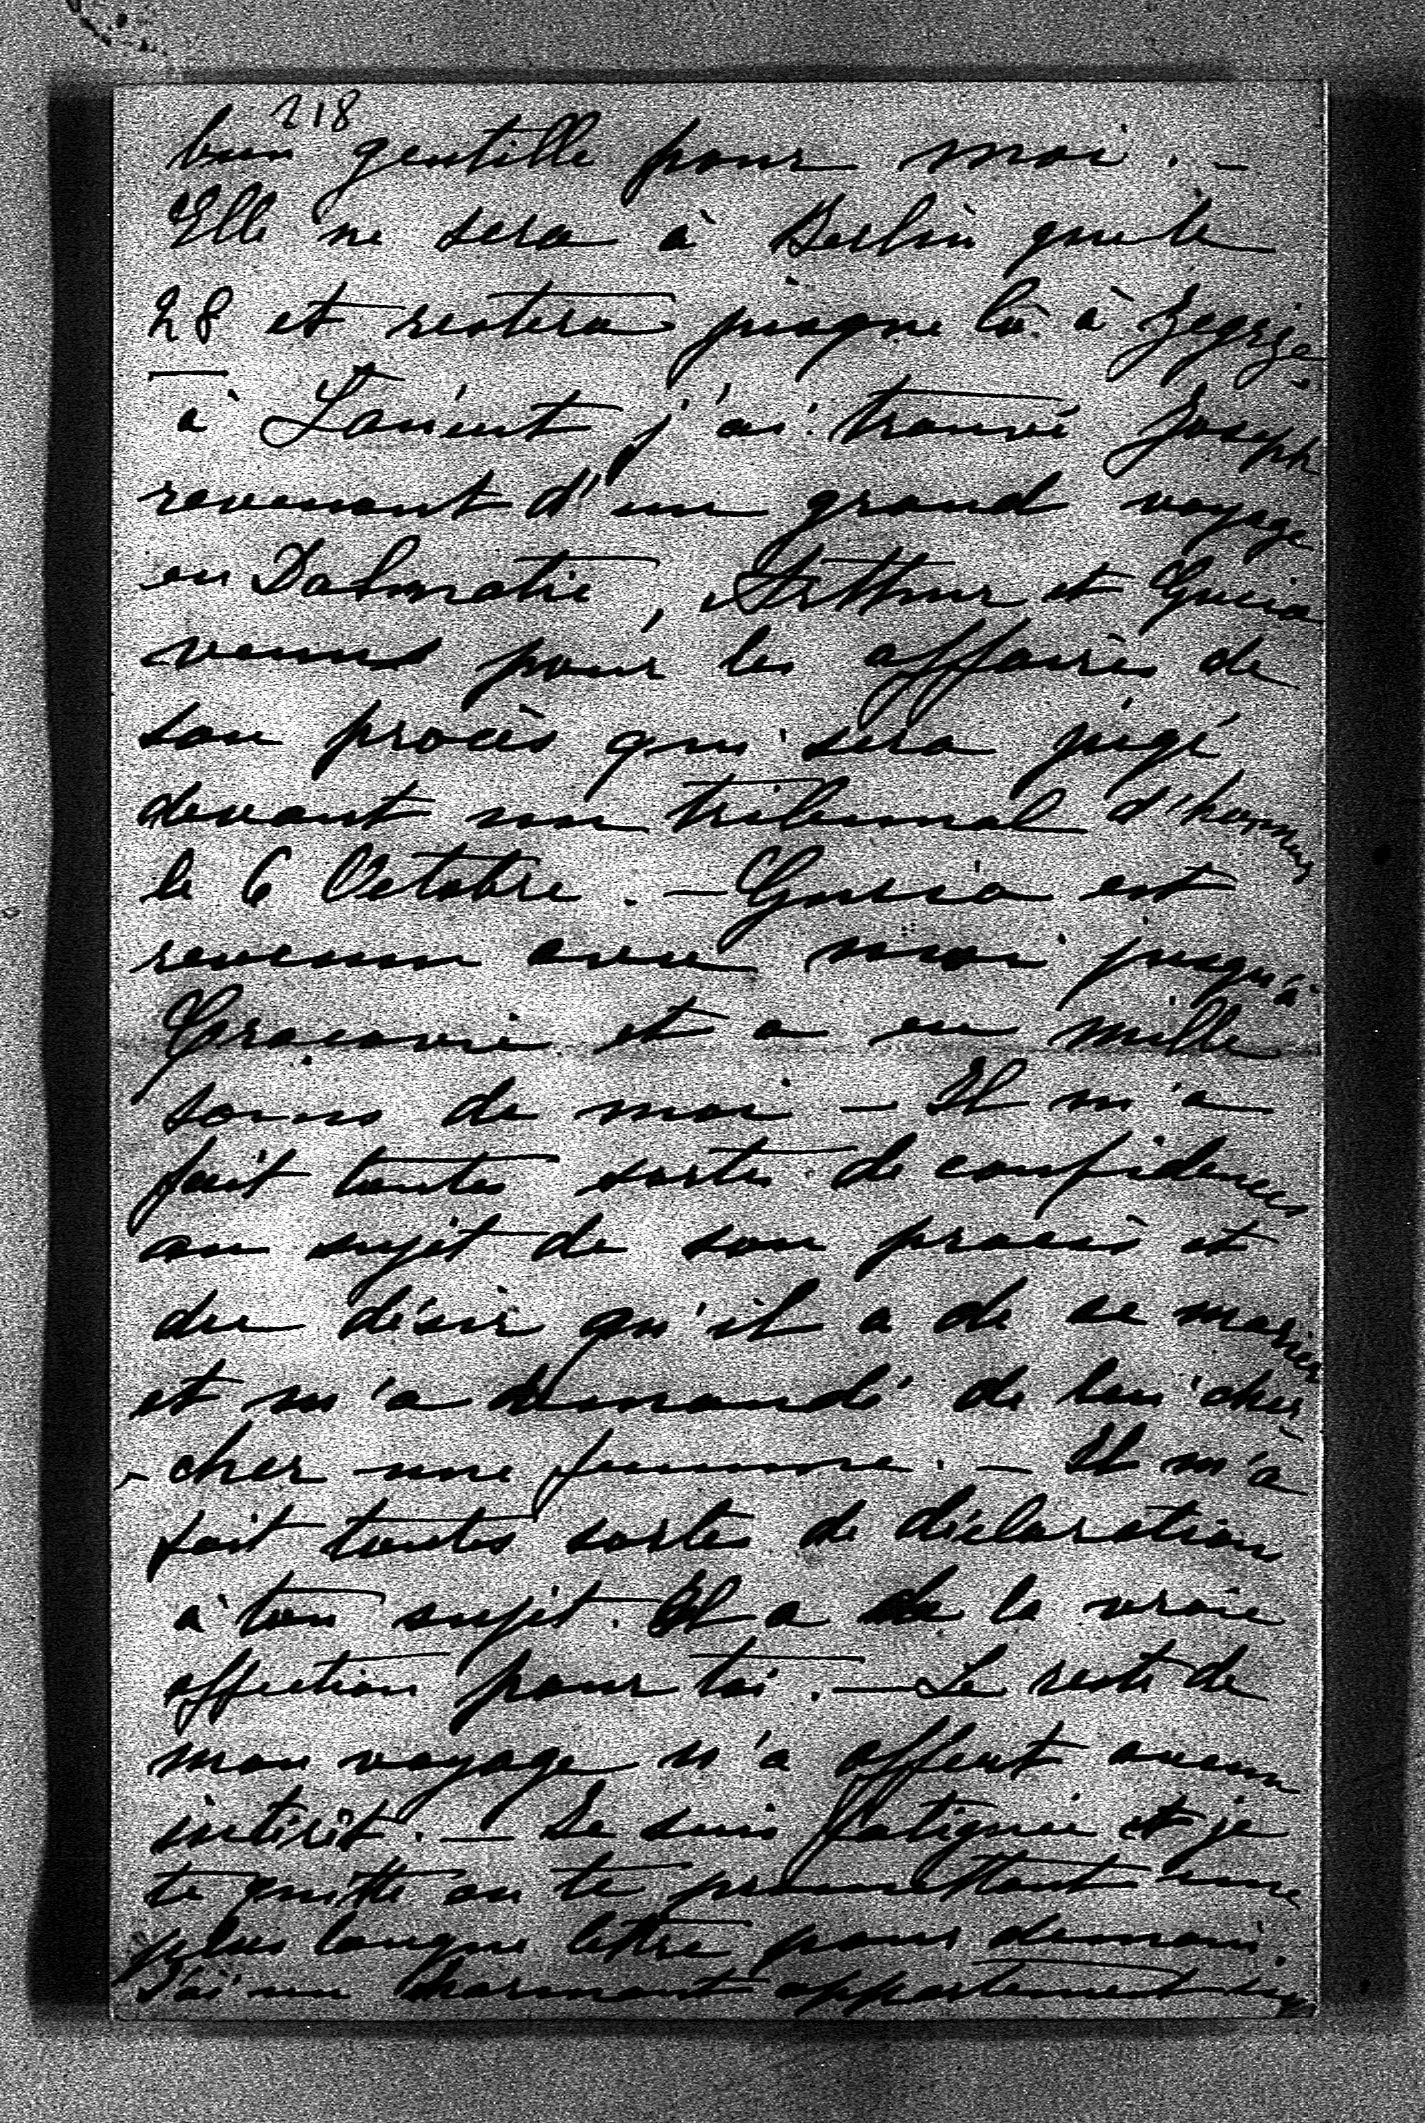 218
bien gentille pour moi. –
Elle ne sera à Berlin que le
28 et restera jusque là à Zegrze
à Lancut j'ai trouvé Joseph
revenant d'un grand voyage
en Dalmatie, Arthur et Gucio
venus pour les affaires de
son procès qui sera jugé
devant un tribunal d'honneur
le 6 Octobre. – Gucio est
revenu avec moi jusqu'à
Cracovie et a eu mille
soins de moi – Il m'a
fait toutes sortes de confidences
au sujet de son procès et
du désir qu'il a de se marier
et m'a demandé de lui cher-
-cher une femme. – Il m'a
fait toutes sortes de déclarations
à ton sujet. Il a de la vraie
affection pour toi. – Le reste de
mon voyage n'a offert aucun
intérêt. – Je suis fatiguée et je
te quitte en te promettant une
plus longue lettre pour demain.
J'ai un charmant appartement